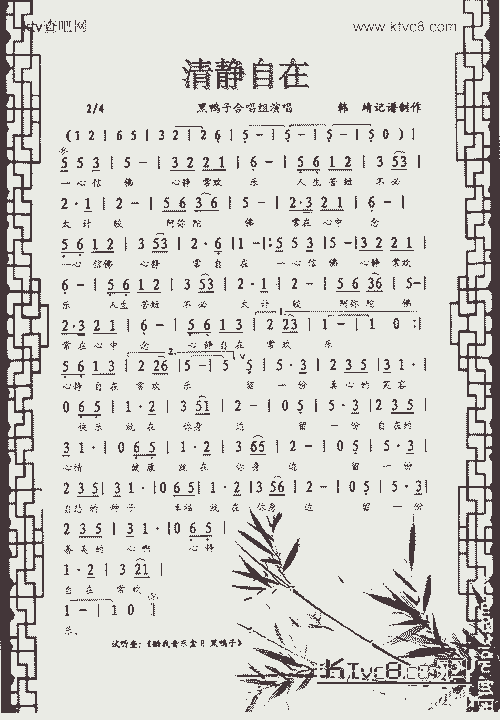 ktv查吧网 www.ktvc8.com
清静自在
2/4 黑鸭子合唱组演唱 韩 靖记谱制作
( 1 2 | 6 5 | 3 2 | 2 6 | 5 - | 5 - | 5 - | 5 0 ) |
5 5 3 | 5 - | 3 2 2 1 | 6 - | 5 6 1 2 | 3 5 3 |
一心信 佛 心静 常欢 乐 人生 苦短 不必
2 · 1 | 2 - | 5 6 3 6 | 5 - | 2 · 3 2 1 | 6 - |
太 计 较 阿弥陀 佛 常在 心中 念
5 6 1 2 | 3 5 3 | 2 · 6 | 1 - |: 5 5 3 | 5 - | 3 2 2 1 |
一心 信佛 心静 常 自 在 一心信 佛 心静 常欢
6 - | 5 6 1 2 | 3 5 3 | 2 · 1 | 2 - | 5 6 3 6 | 5 - |
乐 人生 苦短 不必 太 计 较 阿弥陀 佛
2 · 3 2 1 | 6 - | 5 6 1 3 | 2 2 3 | 1 - | 1 0 :|
常在 心中 念 心静 自在 常欢 乐
5 6 1 3 | 2 2 6 | 5 - | 5 5 | 5 · 3 | 2 3 5 | 3 1 · |
心静 自在 常欢 乐 留 一 份 真心的 笑容
0 6 5 | 1 · 2 | 3 5 1 | 2 - | 0 5 | 5 · 3 | 2 3 5 |
快乐 就在 你身 边 留 一 份 自在的
3 1 · | 0 6 5 | 1 · 2 | 3 6 5 | 2 - | 0 5 | 5 · 3 |
心情 健康 就在 你身 边 留 一份
2 3 5 | 3 1 · | 0 6 5 | 1 · 2 | 3 5 6 | 2 - | 0 5 | 5 · 3 |
种子 幸福 就在 你身 边 留 一份
2 3 5 | 3 1 · | 0 6 5 |
善美的 心啊 心静
1 · 2 | 3 2 1 |
自在 常欢
1 - | 1 0 |
乐。
黑鸭子》
KTvc8.com